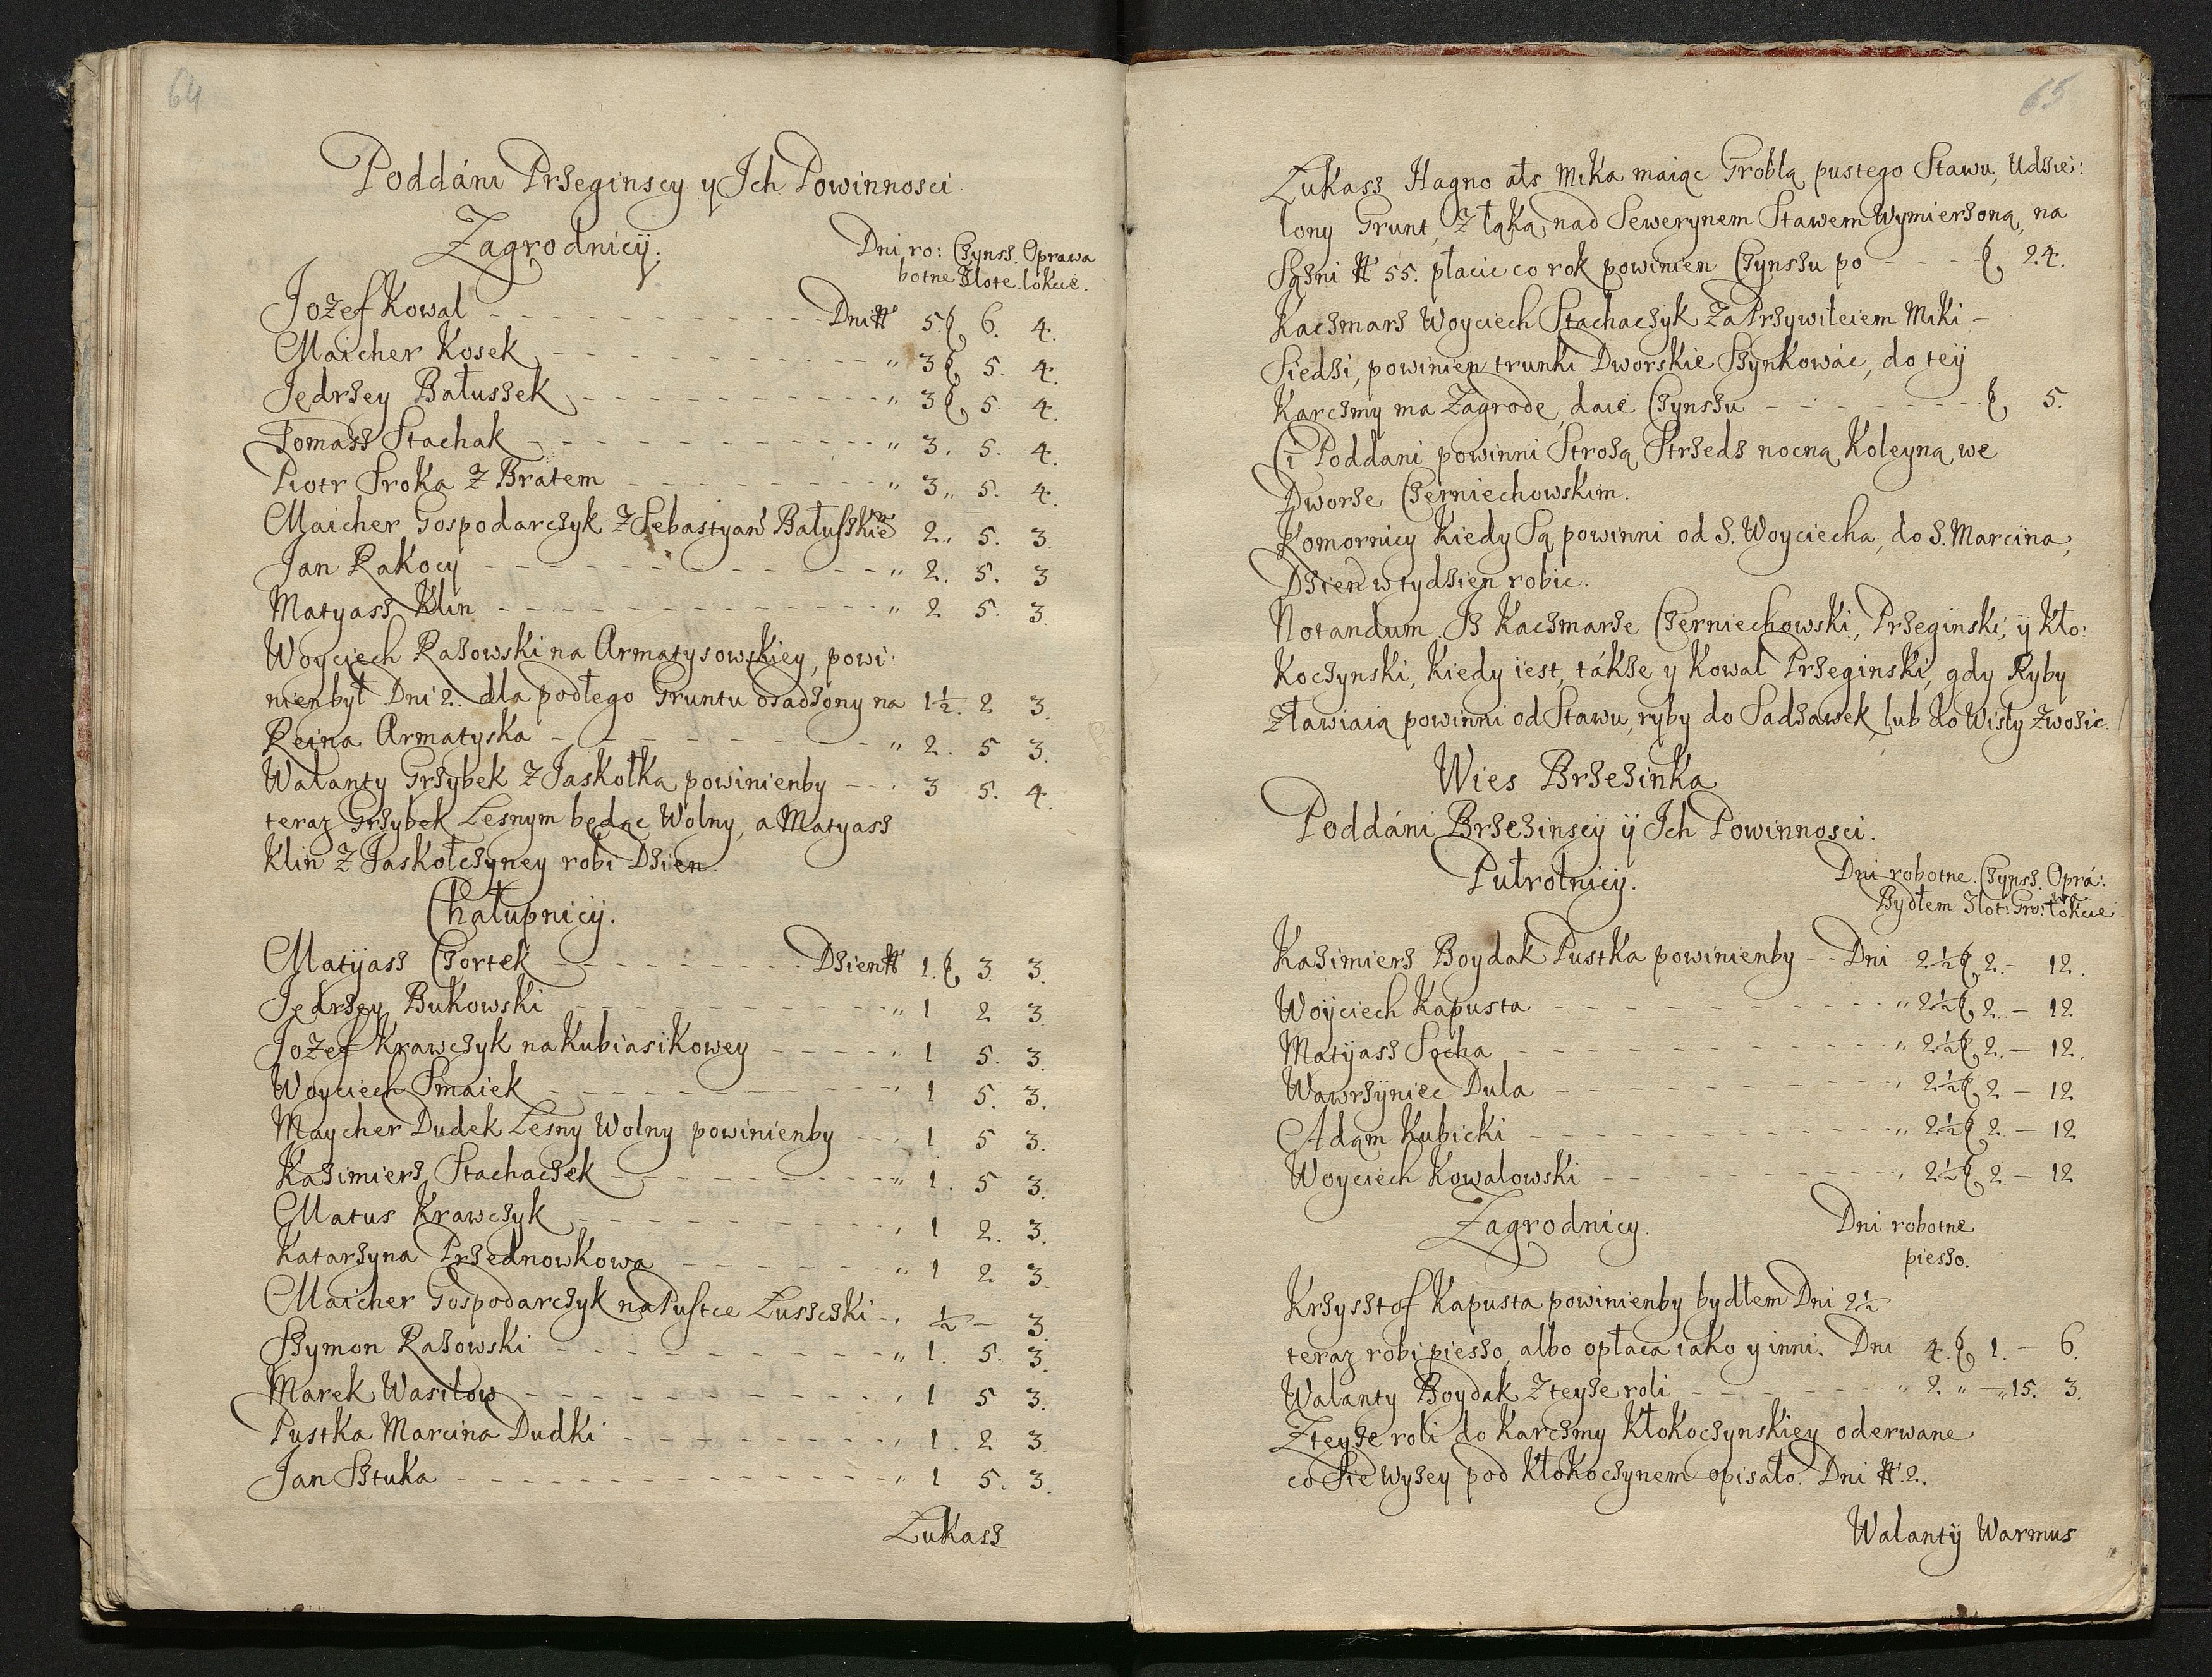 64
Poddáni Przeginscy y Ich Powinnosci
Zagrodnicÿ.
Dni ro: Czynsz. Oprawa
botne Zlote. lokcie.
Jozef Kowal - - - Dni # 5 ₰ 6. 4.
Maicher Kosek - - - " 3 ₰ 5. 4.
Jedrzey Bałuszek - - - " 3 ₰ 5. 4.
Tomasz Stachak - - - " 3. 5. 4.
Piotr Sroka z Bratem - - - " 3,, 5. 4.
Maicher Gospodarczyk z Sebastyan Bałuszkiem 2. 5. 3.
Jan Rakocy - - - " 2. 5. 3
Matyasz Klin - - - " 2 5. 3.
Woyciech Razowski na Armatysowskiey, powi:
nien był Dni 2. dla podłego Gruntu osadzony na 1½. 2 3.
Reina Armatyska - - - " 2. 5 3.
Walanty Grzybek z Jaskołka powinienby - - - 3 5. 4.
teraz Grzybek Lesnym będąc Wolny, a Matyasz
Klin z Jaskołczyney robi Dzien.
Chałupnicÿ.
Matÿasz Czortek - - - Dzien # 1. ₰ 3 3.
Jedrzey Bukowski - - - " 1 2 3.
Jozef Krawczyk na Kubiasikowey - - - " 1 5. 3.
Woyciech Smaiek - - - " 1 5. 3.
Maycher Dudek Lesny Wolny powinienby - - - 1 5 3.
Kazimierz Stachaczek - - - " 1. 5 3.
Matus Krawczyk - - - " 1 2. 3.
Katarzyna Przednowkowa - - - " 1 2 3.
Maicher Gospodarczyk na Pustce Łuszczki - . ½ - 3.
Szymon Razowski - - - " 1. 5. 3.
Marek Wasilow - - - " 1 5 3.
Pustka Marcina Dudki - - - " 1. 2 3.
Jan Sztuka - - - " 1 5. 3.
Łukasz
65
Łukasz Hagno als Mika maiąc Groblą pustego Stawu, Udzie:
lony Grunt, z łąką nad Sewerynem Stawem Wymierzoną, na
Sązni # 55. płacic co rok powinien Czynszu po - - - ₰ 24.
Kaczmarz Woyciech Stachaczyk za Przywileiem Miki -
Siedzi, powinien trunki Dworskie Szynkowác, do teÿ
Karczmy ma Zagrode, daie Czynszu - - - ₰ 5.
Ci Poddani powinni Strozą Strzedz nocną Koleyną we
Dworze Czerniechowskim.
Komornicy Kiedy Są powinni od S. Woyciecha, do S. Marcina,
Dzien w tydzien robic.
Notandum. Iz Kaczmarze Czerniechowski, Przeginski, ÿ Kło:
Koczynski, Kiedy iest, tákze y Kowal Przeginski, gdy Ryby
zławiaią powinni od Stawu, ryby do Sadzawek, lub do Wisły zwozic.
Wies Brzezinka
Poddáni Brzezinscÿ ÿ Ich Powinnosci.
Pułrolnicÿ.
Dni robotne. Czynsz. Oprá:
wa
Bydłem Złot: Gro: łokcie
Kazimierz Boydak Pustka powinienby - - Dni 2½ ₰ 2. - 12.
Woÿciech Kapusta - - - " 2½ ₰ 2. - 12
Matÿasz Socha - - - " 2½ ₰ 2. - 12.
Wawrzÿniec Dula - - - " 2½ ₰ 2 - 12
Adam Kubicki - - - " 2½ ₰ 2 - 12
Woyciech Kowalowski - - - " 2½ ₰ 2 - 12
Zagrodnicy.
Dni robotne
pieszo.
Krzysztof Kapusta powinienby bydłem Dni 2½
teraz robi pieszo, albo opłaca iako y inni. Dni 4. ₰ 1. - 6.
Walanty Boydak z teyze roli - - - " 2. " - " 15. 3.
Z teyze roli do Karczmy Kłokoczynskiey oderwane
co Sie wyzey pod Kłokoczynem opisało. Dni # 2.
Walantÿ Warmus